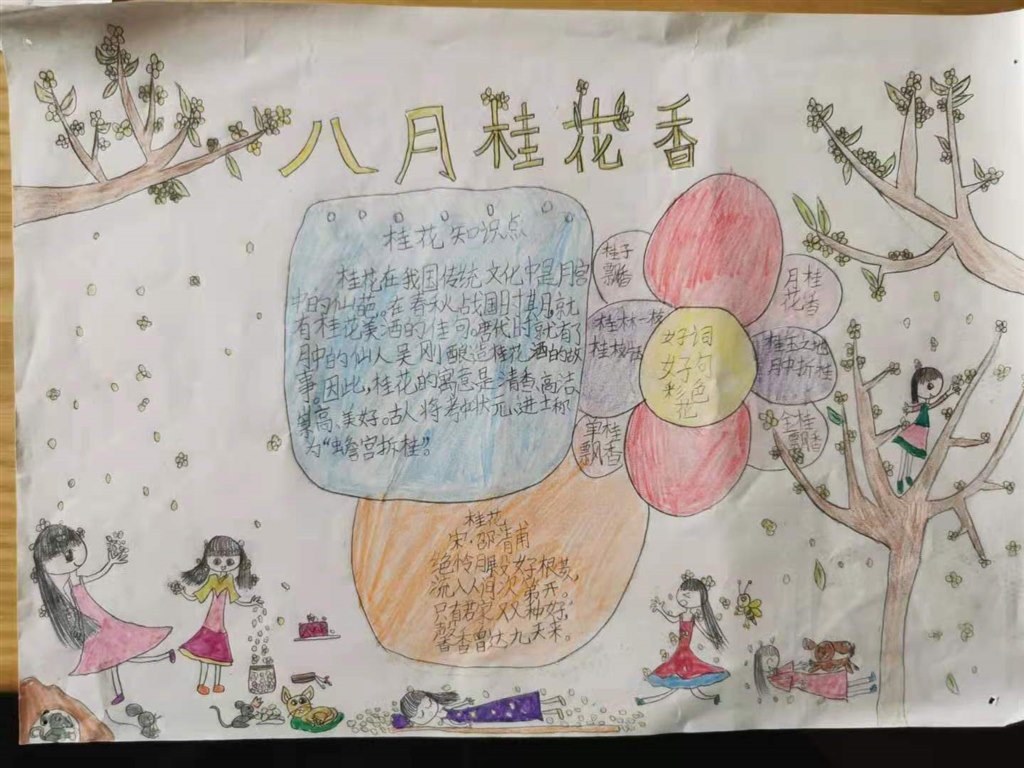 八月桂花香
桂花知识点
桂花在我国传统文化中是月宫
中的仙葩。在春秋战国时期,就
有桂花美酒的佳句。唐代时就有了
月中的仙人吴刚酿造桂花酒的故
事。因此,桂花的寓意是清香、高洁、
崇高、美好。古人将考中状元、进士称
为“蟾宫拆桂”。
桂子
飘香
月桂
花香
桂林一枝
桂枝
好词
好句
彩色
花
桂
月中折桂
里桂
飘香
金桂
飘香
桂花
宋·邵清甫
绝怜月殿好根荄
流入人间次第开。
只有若
馨香曾达九天来。